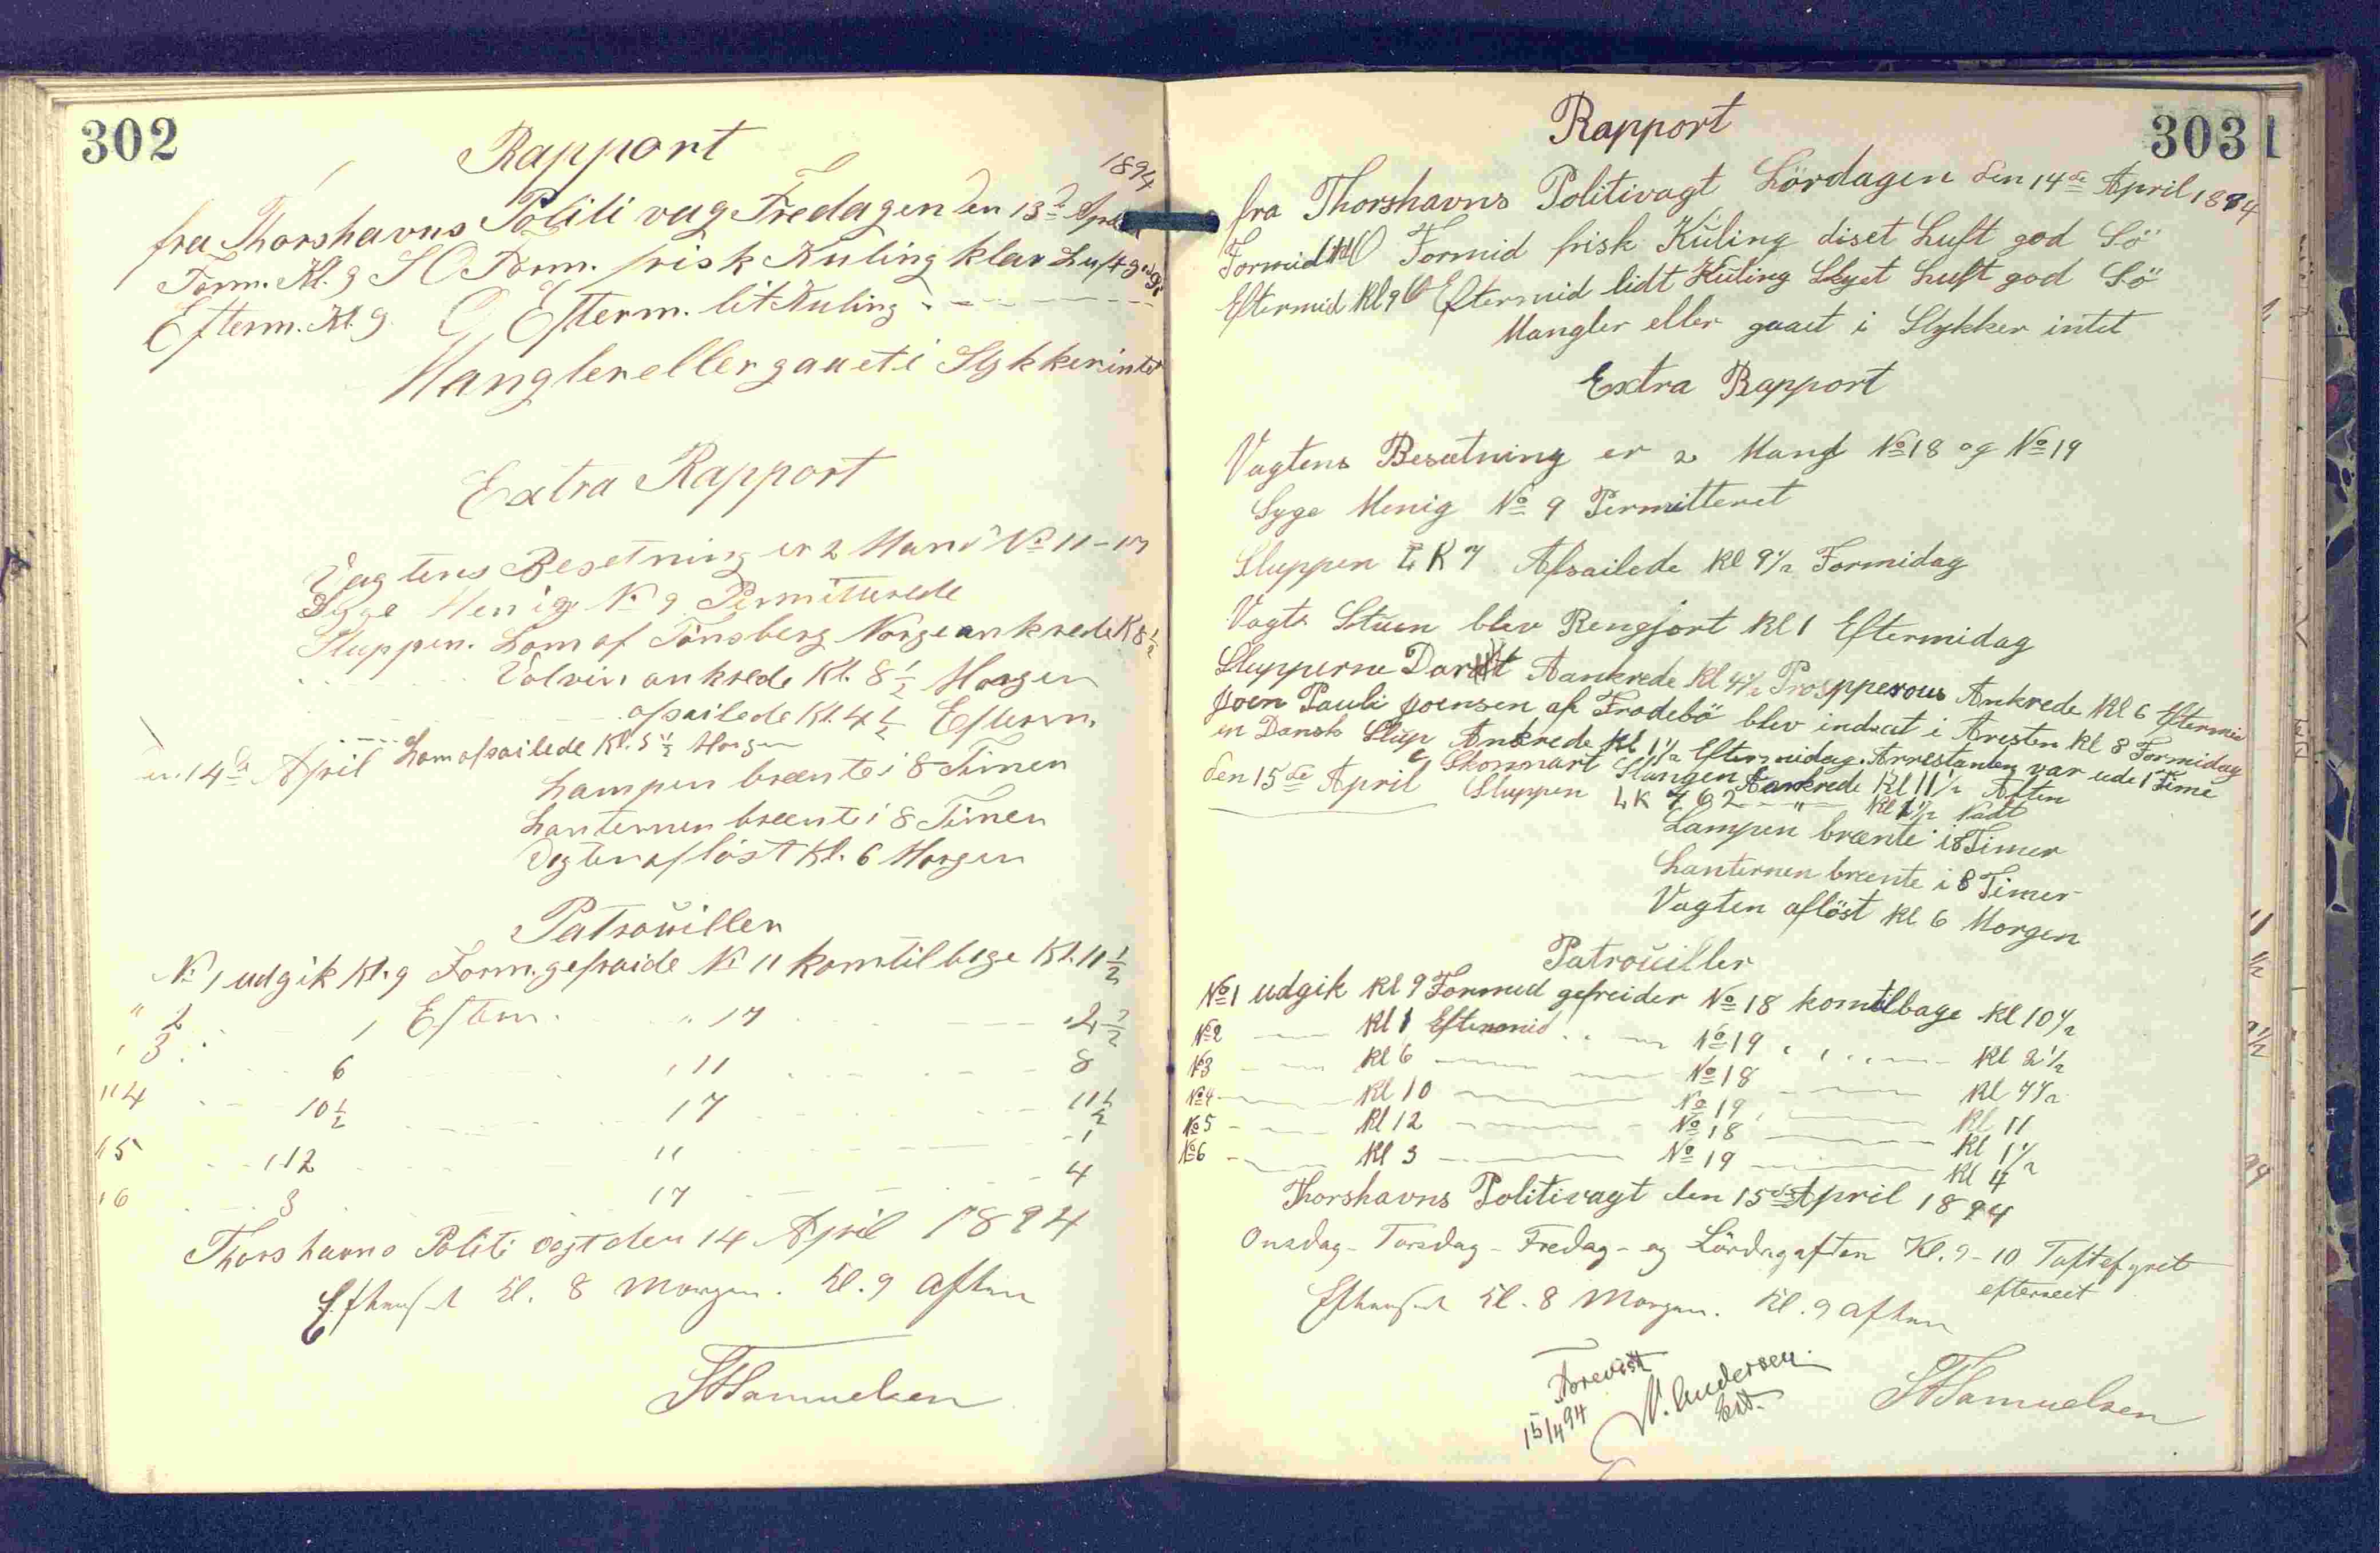 302
Rapport
1894
fra Thorshavns Politi vag Fredagen den 13de April
Form. Kl. 9 SO Form. frisk Kuling klar Luft god Sö
Efterm. Kl. 9 O Efterm. lit Kuling
Mangler eller gaaet i Stykker intet
Extra Rapport
Vagtens Besetning er 2 Mand No 11 - 17
Syge Menige No 9 Permitterede
Sluppen. Lom af Tönsberg Norge ankrede K 8 1/2
ankrede Kl. 8 1/2 Morgen
afsailede Kl. 4 1/2 Efterm.
Lom afsailede Kl. 5 1/2 Morgen
den 14de April
Lampen brænte i 8 Timen
Lanternen brænte i 8 Timen
Vagten aflöst Kl. 6 Morgen
Patrouillen
No 1 udgik Kl. 9 Form. gefraide No 11 kom tilbage Kl. 11 1/2
" 2 1 Eftem. " 17 2 1/2
" 3 6 " 11 8
" 4 10 1/2 17 11 1/2
" 5 12 11 1
" 6 3 17 4
Thorshavns Politi vagt den 14 April 1894
Efterset Kl. 8 Morgen. Kl. 9 Aften
Samuelsen
303
Rapport
fra Thorshavns Politivagt Lördagen den 14de April 1894
Formid Formid frisk Kuling diset Luft god Sö
Eftermid Kl 9 O Eftermid lidt Kuling Skyet Luft god Sö
Mangler eller gaaet i Stykker intet
Extra Rapport
Vagtens Besætning er 2 Mand No 18 og No 19
Syge Menig No 9 Permitteret
Sluppen L K 7 Afsailede Kl 9 1/2 Formidag
Vagts Stuen blev Rengjort Kl 1 Eftermidag
Slupperne Aankrede Kl 4 1/2 Prospperous Ankrede Kl 6 Eftermid
Joen Pauli Joensen af Frodebö blev indsat i Aresten Kl 8 Formidag
en Dansk Slup Ankrede Kl 1 1/2 Eftermidag. Arrestanten var ude 1 Time
Skonnart Slangen Aankrede Kl 11 1/2 Aften
den 15de April Sluppen LK 762 " Kl 1 1/2 Nadt
Lampen brænte i 8 Timer
Lanternen brænte i 8 Timer
Vagten aflöst Kl 6 Morgen
Patrouiller
No 1 udgik Kl 9 Formid gefreider No 18 kom tilbage Kl 10 1/2
No 2 Kl 1 Eftermid No 19 Kl 2 1/2
No 3 Kl 6 No 18 Kl 7 1/2
No 4 Kl 10 No 19 Kl 11
No 5 Kl 12 No 18 Kl 1 1/2
No 6 Kl 3 No 19 Kl 4
Thorshavns Politivagt den 15de April 1894
Onsdag - Torsdag - Fredag - og Lördagaften Kl. 9-10 Toftefyret
efterseet
Efterset Kl. 8 Morgen. Kl. 9 Aften
Forevist
15/4 94
N. Andersen
Samuelsen